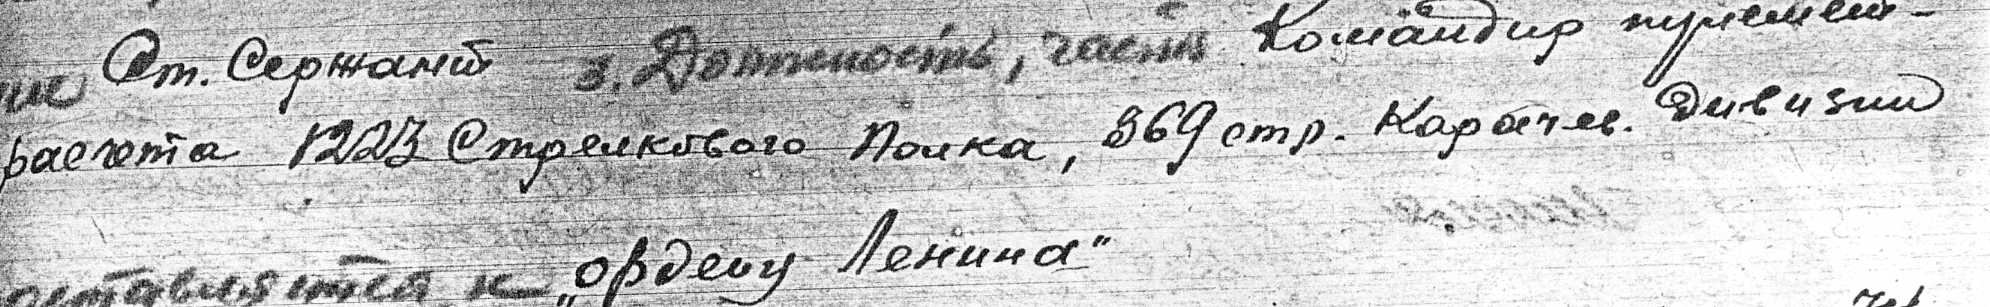 ние Ст. Сержант 3. Должность, часть Командир пулемет-
расчета 1223 Стрелкового Полка, 369 стр. Карачев. дивизии
ставляется к „ордену Ленина"